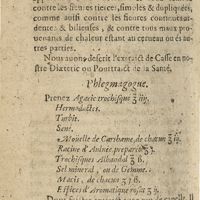 contre les fieures tierces, simples & dupliquées,
comme aussi contre les fieures continues arden-
dentes: & bilieuses, & contre tous maux pro-
uenants de chaleur estant au cerueau ou és au-
tres parties.
Nous auons descrit l'extraict de Casse en no-
stre Diætetic ou Pourtraict de la Santé.
Phlegmagogue.
Prenez Agaric trochisqué ℥ iiij.
Hermodactes.
Turbit.
Sené.
Moüelle de Carthame, de chacun ℥ iß.
Racine d'Aulnée, preparée
Trochisques Alhandal ℥ ß.
Sel mineral, ou de Gemme.
Macis, de chacun ʒ ß.
Especes d'Aromatique rosat ʒ ij.